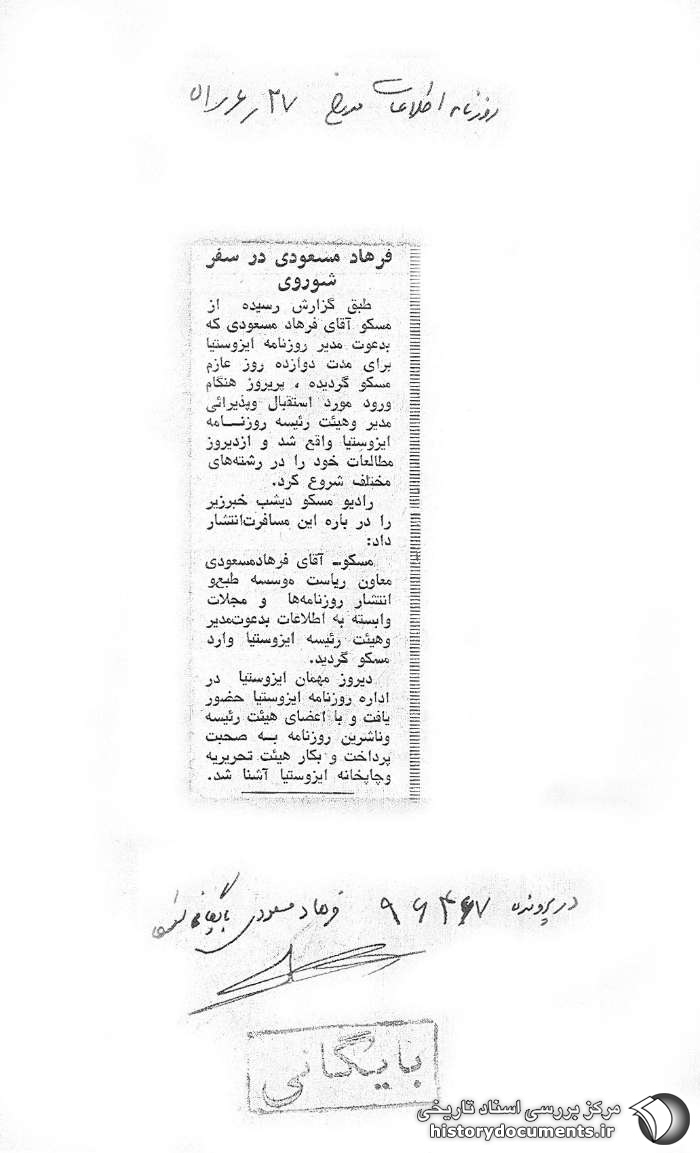 روزنامه اطلاعات مورخ ۲۷ر۶ر۵۱
فرهاد مسعودی در سفر
شوروی
طبق گزارش رسیده از
مسکو آقای فرهاد مسعودی که
بدعوت مدیر روزنامه ایزوستیا
برای مدت دوازده روز عازم
مسکو گردیده ، پریروز هنگام
ورود مورد استقبال وپذیرائی
مدیر وهیئت رئیسه روزنـــامه
ایزوستیا واقع شد و ازدیروز
مطالعات خود را در رشته‌های
مختلف شروع کرد.
رادیو مسکو دیشب خبرزیر
را در باره این مسافرت‌انتشار
داد:
مسکوـ آقای فرهادمسعودی
معاون ریاست موسسه طبع‌و
انتشار روزنامه‌ها و مجلات
وابسته به اطلاعات بدعوت‌مدیر
وهیئت رئیسه ایزوستیا وارد
مسکو گردید.
دیروز مهمان ایزوستیا در
اداره روزنامه ایزوستیا حضور
یافت و با اعضای هیئت رئیسه
وناشرین روزنامه بـه صحبت
پرداخت و بکار هیئت تحریریه
وچاپخانه ایزوستیا آشنا شد.
در پرونده فرهاد مسعودی بایگانی شود
بایگانی
مرکز بررسی اسناد تاریخی
historydocuments.ir